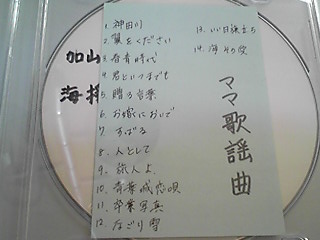 1. 神田川
2. 翼をください
3. 青春時代
4. 君といつまでも
5. 贈る言葉
6. お嫁においで
7. すばる
8. 人として
9. 旅人よ
10. 青葉城恋唄
11. 卒業写真
12. なごり雪
13. いい日旅立ち
14. 海 その愛
ママ歌謡曲
加山
海